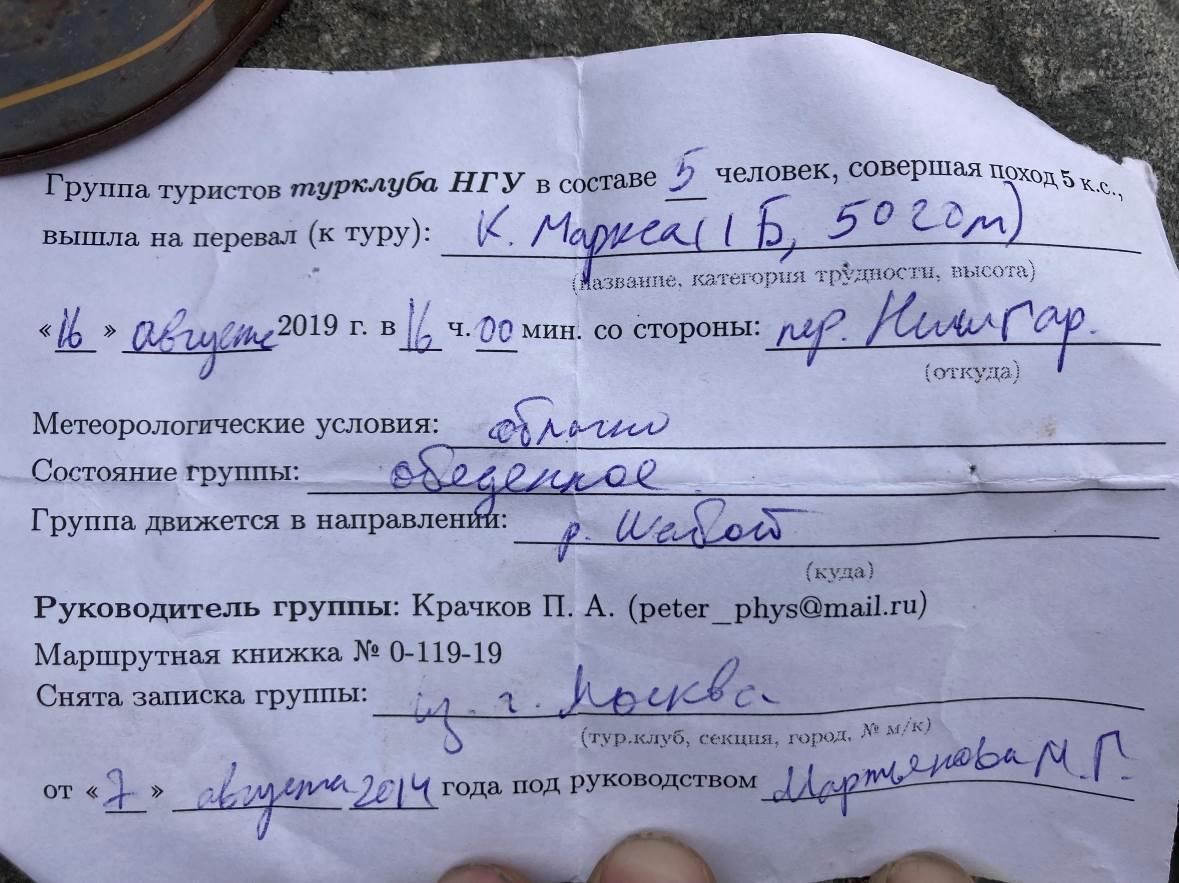 Группа туристов турклуба НГУ в составе 5 человек, совершая поход 5 к.с.,
вышла на перевал (к туру): К. Маркса (1Б, 5020м)
(название, категория трудности, высота)
«16» августа 2019 г. в 16 ч. 00 мин. со стороны: пер. Нишгар.
(откуда)
Метеорологические условия: облачно
Состояние группы: обеденное
Группа движется в направлении: р. Шабой
(куда)
Руководитель группы: Крачков П. А. (peter_phys@mail.ru)
Маршрутная книжка № 0-119-19
Снята записка группы: из г. Москва
(тур.клуб, секция, город, № м/к)
от «7» августа 2014 года под руководством Мартьянова М.Г.